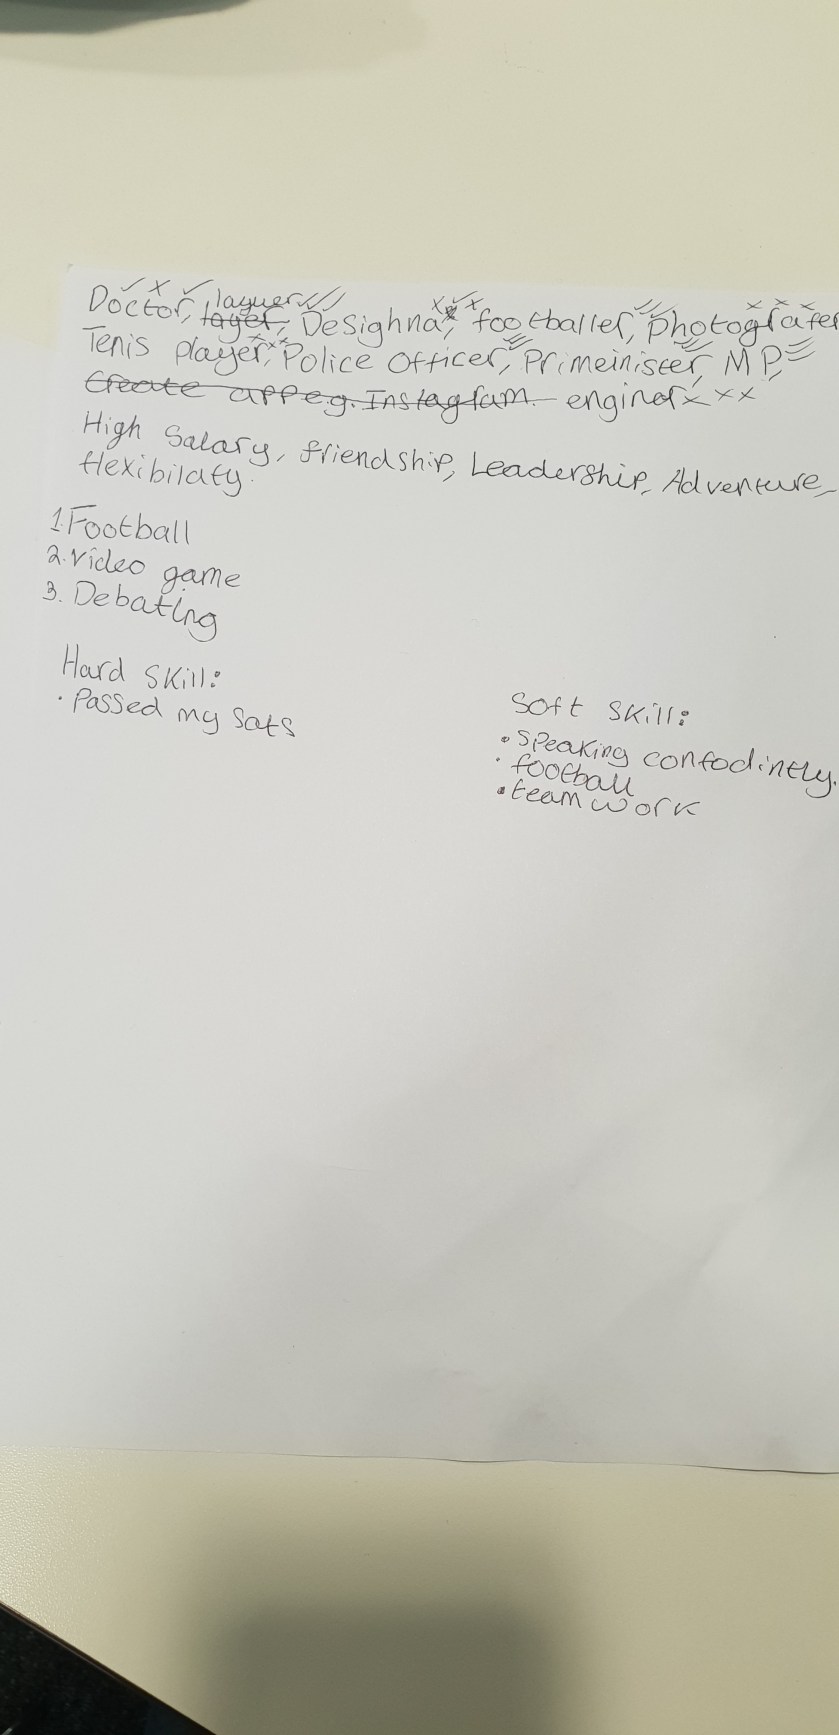 Doctor, layer, layuer Desighnar, footballer, Photografer
Tenis player, Police officer, Primeinister, MP,
Create app e.g. Instagram enginer xxx
High Salary, friendship, Leadership, Adventure,
flexibilaty.
1. Football
2. Video game
3. Debating
Hard Skill:
· Passed my Sats
Soft Skill:
· Speaking confodintly.
· football
· team work